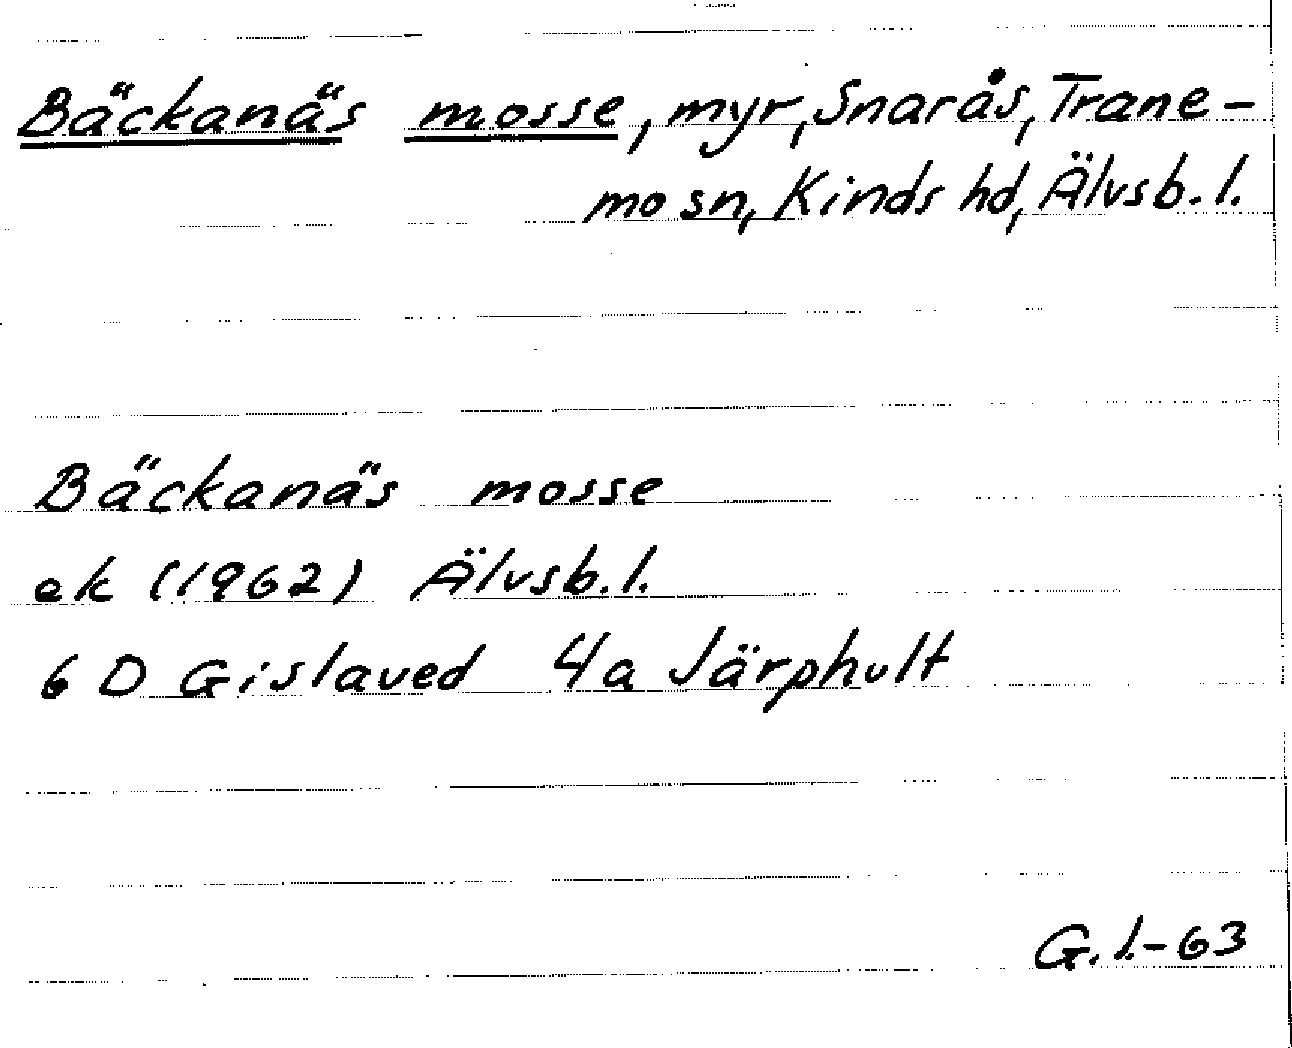 Bäckanäs mosse, myr, Snarås, Trane-
mo sn, Kinds hd, Älvsb. l.
Bäckanäs mosse
ek (1962) Älvsb. l.
6 D Gislaved 4a Järphult
G. l.-63